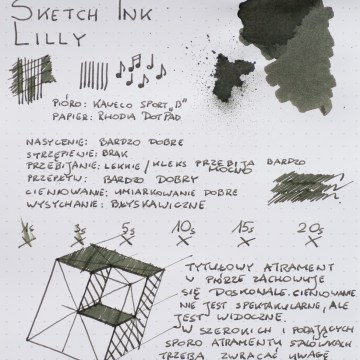 SKETCH INK
LILLY
PIÓRO: KAWECO SPORT „B"
PAPIER: RHODIA DOTPAD
NASYCENIE: BARDZO DOBRE
STRZĘPIENIE: BRAK
PRZEBIJANIE: LEKKIE / KLEKS PRZEBIJA BARDZO
MOCNO
PRZEPŁYW: BARDZO DOBRY
CIENIOWANIE: UMIARKOWANIE DOBRE
WYSYCHANIE: BŁYSKAWICZNE
1s 3s 5s 10s 15s 20s
TYTUŁOWY ATRAMENT
W PIÓRZE ZACHOWUJE
SIĘ DOSKONALE. CIENIOWANIE
NIE JEST SPEKTAKULARNE, ALE
JEST WIDOCZNE.
W SZEROKICH I PODAJĄCYCH
SPORO ATRAMENTU STALÓWKACH
TRZEBA ZWRACAĆ UWAGĘ